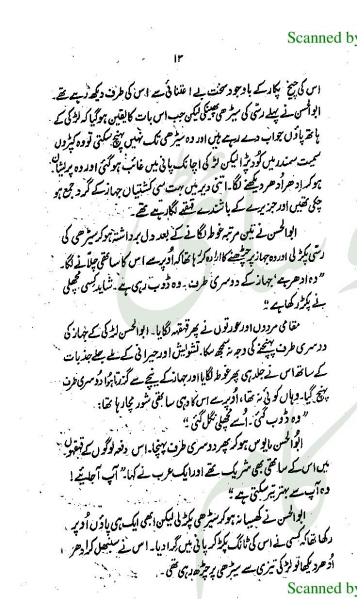 Scanned by
۱۳
اس کی چیخ پکار کے باوجود سخت بے اعتنائی سے اس کی طرف دیکھ رہے تھے۔
ابوالحسن نے پہلے رسّی کی سیڑھی پھینکی لیکن جب اس بات کا یقین ہوگیا کہ لڑکی کے
ہاتھ پاؤں جواب دے رہے ہیں اور وہ سیڑھی تک نہیں پہنچ سکتی تو وہ کپڑوں
سمیت سمندر میں کود پڑا لیکن لڑکی اچانک پانی میں غائب ہوگئی اور وہ پریشان
ہوکر اِدھر اُدھر دیکھنے لگا۔ اتنی دیر میں بہت سی کشتیاں جہاز کے گرد جمع ہو
چکی تھیں اور جزیرے کے باشندے قہقہے لگا رہے تھے۔
ابوالحسن نے تین مرتبہ غوطہ لگانے کے بعد دل برداشتہ ہوکر سیڑھی کی
رسّی پکڑ لی اور وہ جہاز پر چڑھنے کا ارادہ کر رہا تھا کہ اُوپر سے اس کا ساتھی چلّانے لگا۔
”وہ ادھر ہے‘ جہاز کے دوسری طرف۔ وہ ڈوب رہی ہے۔ شاید کسی مچھلی
نے پکڑ رکھا ہے“
مقامی مردوں اور عورتوں نے پھر قہقہہ لگایا۔ ابوالحسن لڑکی کے جہاز کی
دوسری طرف پہنچنے کی وجہ نہ سمجھ سکا۔ تشویش اور حیرانی کے ملے جلے جذبات
کے ساتھ اس نے جلد ہی پھر غوطہ لگایا اور جہاز کے نیچے سے گزرتا ہوا دوسری طرف
پہنچ گیا۔ وہاں کوئی نہ تھا، اُوپر سے اس کا وہی ساتھی شور مچا رہا تھا:
”وہ ڈوب گئی۔ اُسے مچھلی نگل گئی“
ابوالحسن مایوس ہوکر پھر دوسری طرف پہنچا۔ اس دفعہ لوگوں کے قہقہوں
میں اس کے ساتھی بھی شریک تھے اور ایک عرب نے کہا۔ ”آپ آجائیے!
وہ آپ سے بہتر تیر سکتی ہے“
ابوالحسن نے کھسیانہ ہوکر سیڑھی پکڑ لی لیکن ابھی ایک ہی پاؤں اُوپر
رکھا تھا کہ کسی نے اس کی ٹانگ پکڑ کر پانی میں گرا دیا۔ اس نے سنبھل کر ادھر
اُدھر دیکھا تو لڑکی تیزی سے سیڑھی پر چڑھ رہی تھی۔
Scanned by